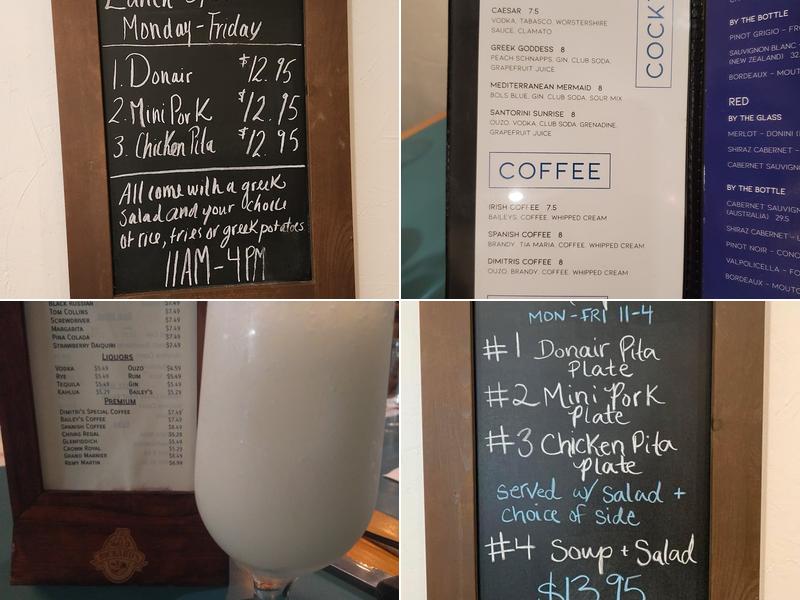 Monday-Friday
1. Donair $12.95
2. Mini Pork $12.95
3. Chicken Pita $12.95
All come with a greek
salad and your choice
of rice, fries or greek potatoes
11AM-4PM
CAESAR 7.5
VODKA, TABASCO, WORSTERSHIRE
SAUCE, CLAMATO
GREEK GODDESS 8
PEACH SCHNAPPS, GIN, CLUB SODA,
GRAPEFRUIT JUICE
MEDITERRANEAN MERMAID 8
BOLS BLUE, GIN, CLUB SODA, SOUR MIX
SANTORINI SUNRISE 8
OUZO, VODKA, CLUB SODA, GRENADINE,
GRAPEFRUIT JUICE
COFFEE
IRISH COFFEE 7.5
BAILEYS, COFFEE, WHIPPED CREAM
SPANISH COFFEE 8
BRANDY, TIA MARIA, COFFEE, WHIPPED CREAM
DIMITRIS COFFEE 8
OUZO, BRANDY, COFFEE, WHIPPED CREAM
COCKT
BY THE BOTTLE
PINOT GRIGIO - FR
SAUVIGNON BLANC
(NEW ZEALAND) 32
BORDEAUX - MOUT
RED
BY THE GLASS
MERLOT - DONINI (
SHIRAZ CABERNET -
CABERNET SAUVIGN
BY THE BOTTLE
CABERNET SAUVIG
(AUSTRALIA) 29.5
SHIRAZ CABERNET -
PINOT NOIR - CONO
VALPOLICELLA - FO
BORDEAUX - MOUTO
BLACK RUSSIAN $7.49
TOM COLLINS $7.49
SCREWDRIVER $7.49
MARGARITA $7.49
PINA COLADA $7.49
STRAWBERRY DAIQUIRI $7.49
LIQUORS
VODKA $5.49 OUZO $4.59
RYE $5.49 RUM $5.49
TEQUILA $5.49 GIN $5.49
KAHLUA $5.29 BAILEY'S $5.29
PREMIUM
DIMITRI'S SPECIAL COFFEE $7.49
BAILEY'S COFFEE $7.49
SPANISH COFFEE $8.49
CHIVAS REGAL $6.29
GLENFIDDICH $6.49
CROWN ROYAL $5.29
GRAND MARNIER $6.49
REMY MARTIN $6.99
RICKARD'S
MON-FRI 11-4
#1 Donair Pita
Plate
#2 Mini Pork
Plate
#3 Chicken Pita
plate
served w/ salad +
choice of side
#4 Soup + Salad
$13.95